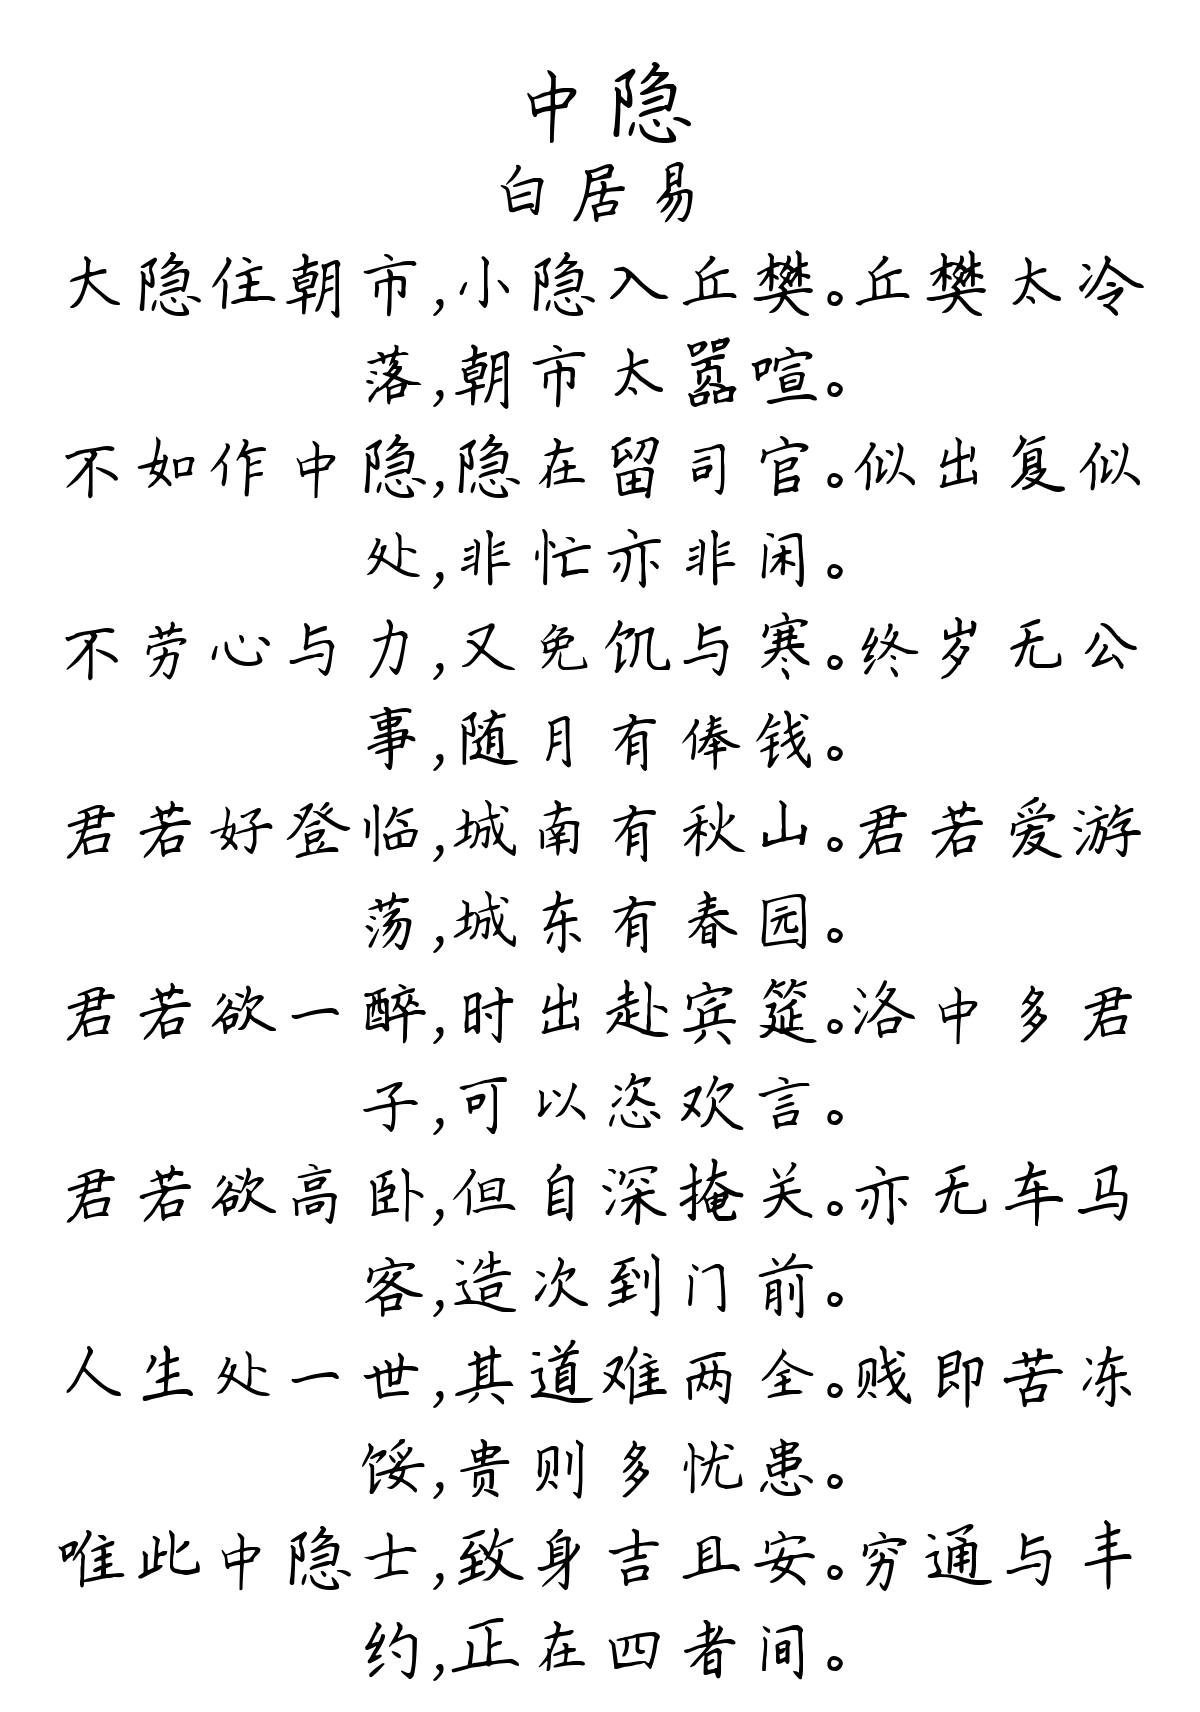 中隐
白居易
大隐住朝市,小隐入丘樊。丘樊太冷
落,朝市太嚣喧。
不如作中隐,隐在留司官。似出复似
处,非忙亦非闲。
不劳心与力,又免饥与寒。终岁无公
事,随月有俸钱。
君若好登临,城南有秋山。君若爱游
荡,城东有春园。
君若欲一醉,时出赴宾筵。洛中多君
子,可以恣欢言。
君若欲高卧,但自深掩关。亦无车马
客,造次到门前。
人生处一世,其道难两全。贱即苦冻
馁,贵则多忧患。
唯此中隐士,致身吉且安。穷通与丰
约,正在四者间。